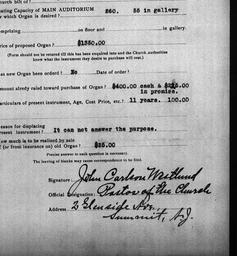 Church bill of
Seating Capacity of MAIN AUDITORIUM 260. 55 in gallery
which Organ is desired?
comprising on floor and in gallery.
Price of proposed Organ? $1350.00
(Form should not be returned till this has been inquired into and the Church authorities
know what the instrument they desire to purchase will cost.)
Has new Organ been ordered? No Date of order?
Amount already raised toward purchase of Organ? $400.00 cash & in promise.
Particulars of present instrument, Age, Cost Price, etc.? 11 years. 100.00
Reasons for displacing
present instrument? It can not answer the purpose.
How much is to be realized by sale
of (or from insurance on) old Organ? $25.00
Precise answer to each question is necessary.
The leaving of blanks may cause correspondence to be filed.
Signature: John Carlson Westlund
Official Designation: Pastor of the Church
Address 2 Glenside Ave.,
Summit, N.J.